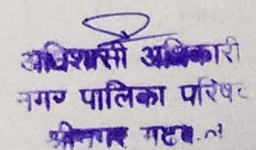 अधिशासी अधिकारी
नगर पालिका परिषद
श्रीनगर गढ़वाल